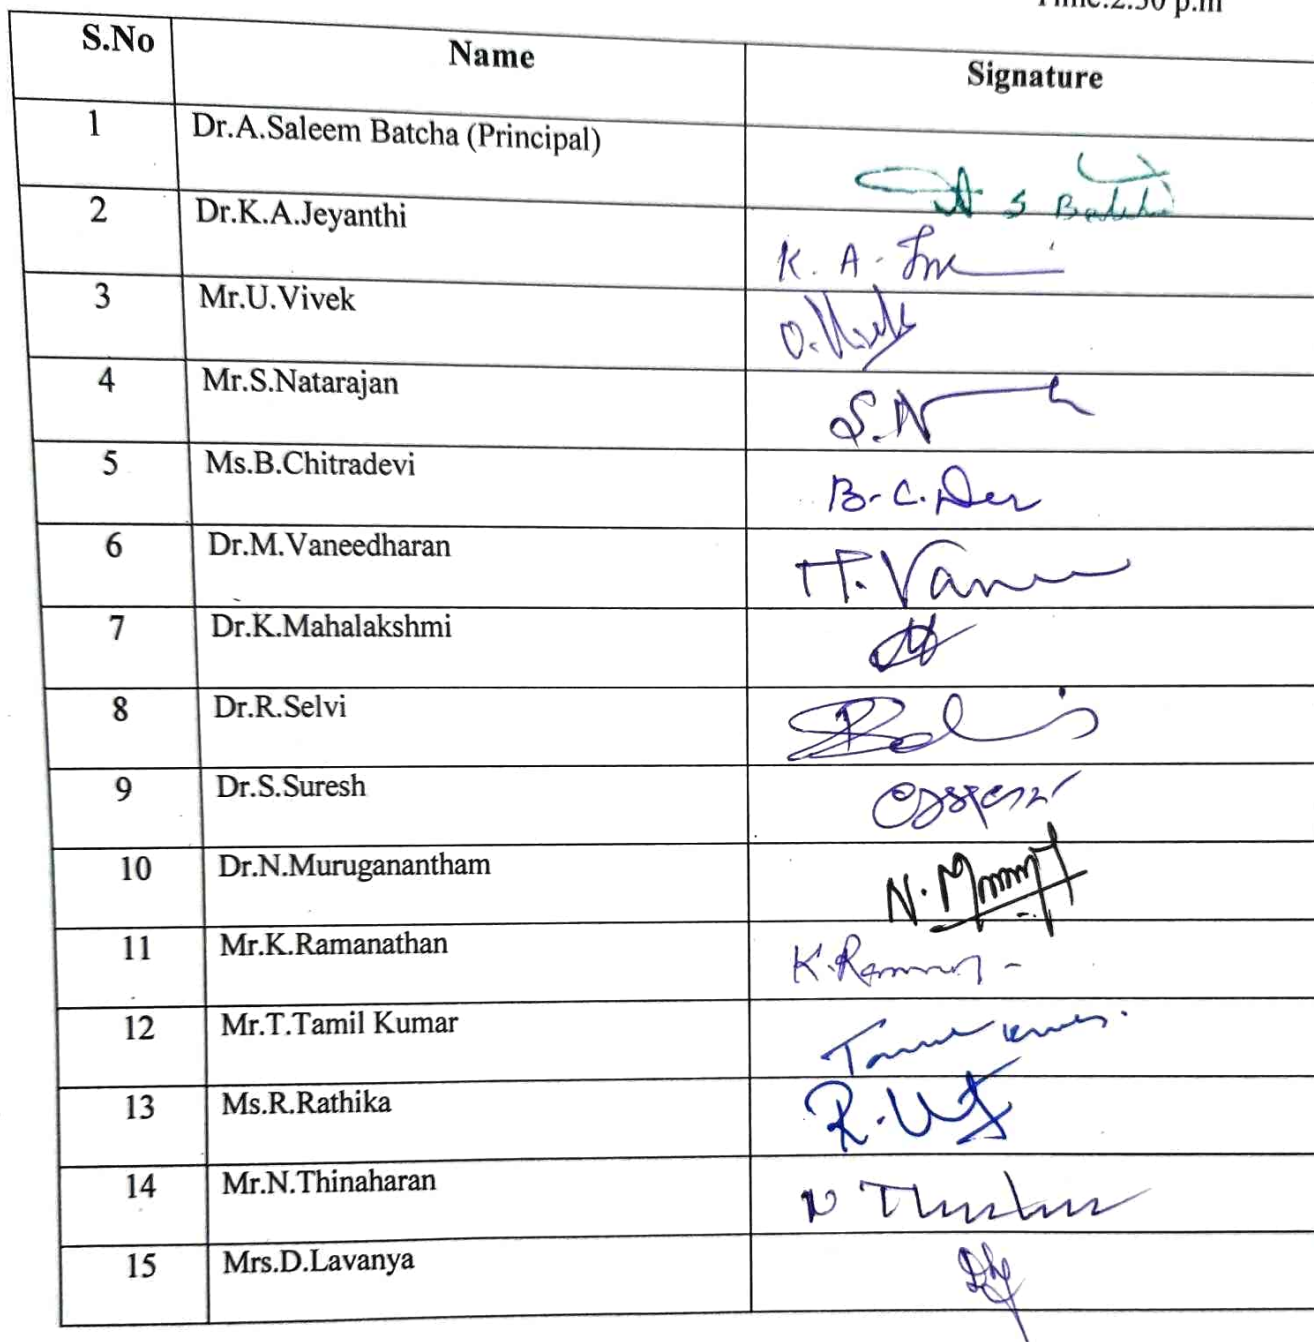 Time:2.30 p.m
S.No Name Signature
1 Dr.A.Saleem Batcha (Principal) A S Batcha
2 Dr.K.A.Jeyanthi K. A.
3 Mr.U.Vivek U.Vivek
4 Mr.S.Natarajan S.N
5 Ms.B.Chitradevi B.C.Dev
6 Dr.M.Vaneedharan
7 Dr.K.Mahalakshmi
8 Dr.R.Selvi
9 Dr.S.Suresh
10 Dr.N.Muruganantham N.
11 Mr.K.Ramanathan K.
12 Mr.T.Tamil Kumar
13 Ms.R.Rathika R.
14 Mr.N.Thinaharan N
15 Mrs.D.Lavanya